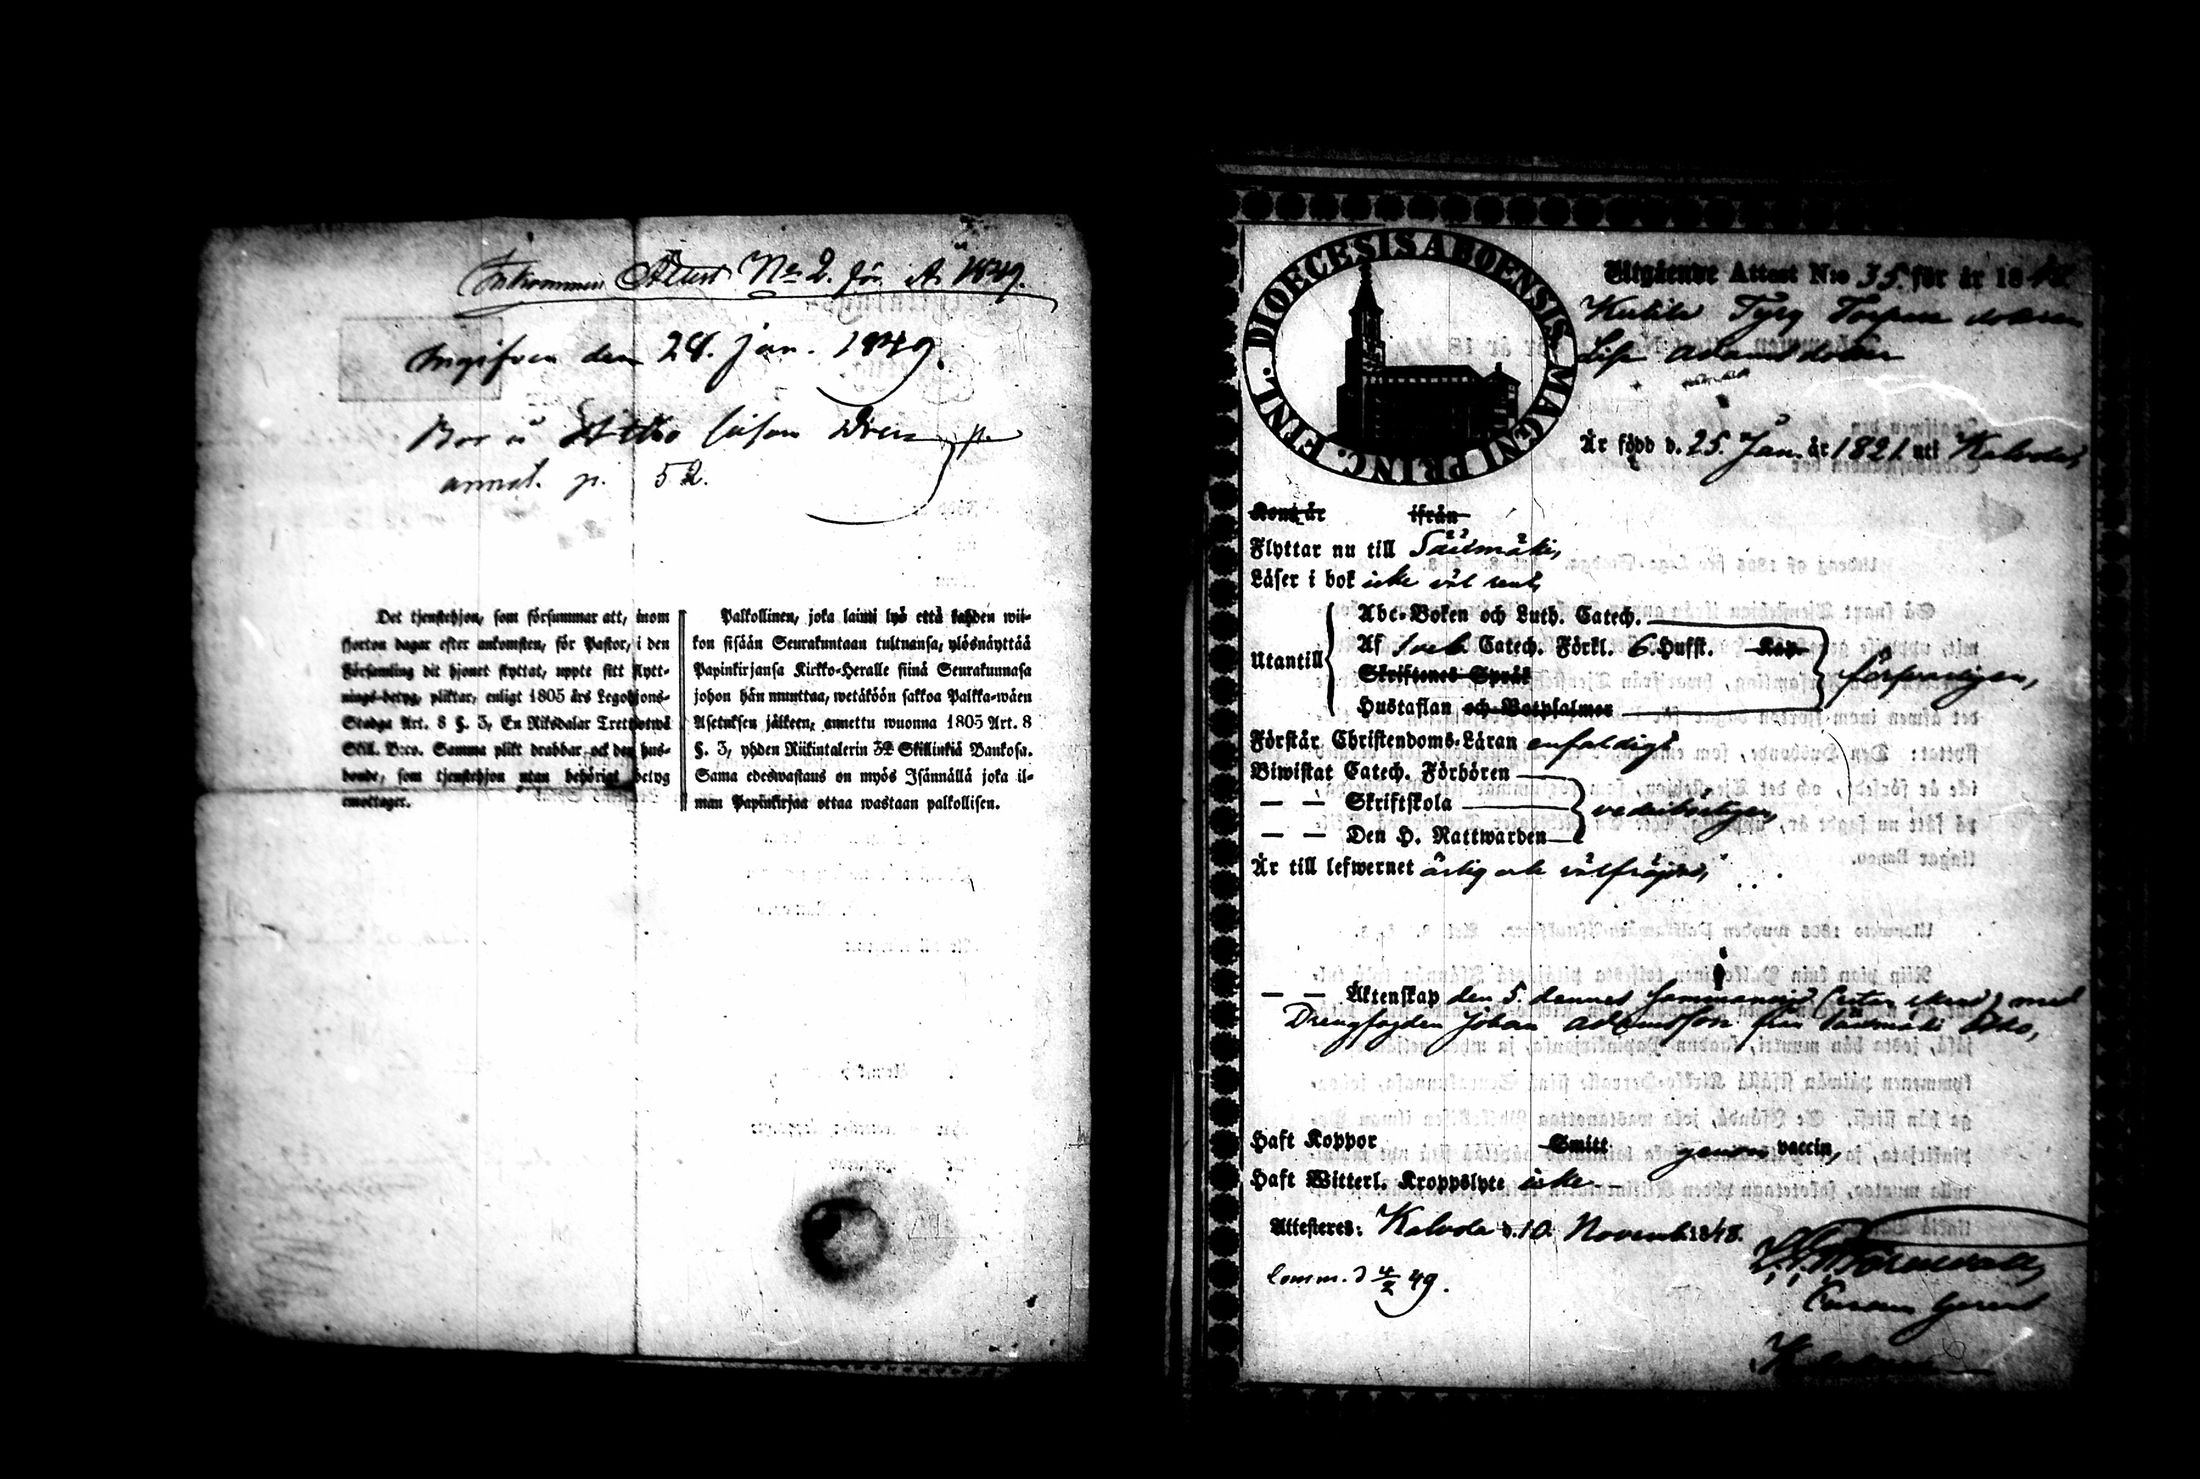 Inkommen Attest No 2. för År 1849.
Ingifven den 28. Jan. 1849.
Bor å Wtko
annat. p. 52.
Det tjenstehjon, som försummar att, inom
fjorton dagar efter ankomsten, för Pastor, i den
Församling dit hjonet flyttat, uppte sitt flytt-
nings-betyg, pliktar, enligt 1805 års Legohjons-
Stadga Art. 8 §. 3, En Riksdalar Trettiotwå
Skill. B:co. Samma plikt drabbar ock den hus-
bonde, som tjenstehjon utan behörigt betyg
emottager.
Palkollinen, joka laimi lyö että kahden wii-
kon sisään Seurakuntaan tultuansa, ylösnäyttää
Papinkirjansa Kirkko-Heralle siinä Seurakunnasa
johon hän muuttaa, wetäköön sakkoa Palkka-wäen
Asetuksen jälkeen, annettu wuonna 1805 Art. 8
§. 3, yhden Riikintalerin 32 Skillinkiä Bankosa.
Sama edeswastaus on myös Isännällä joka il-
man Papinkirjaa ottaa wastaan palkollisen.
DIOECESIS ABOENSIS MAGNI PRINC. FINL.
Utgående Attest N:o 35. för år 1848.
Torpare dottren
Lisa Adamsdotter
Är född d. 25. Jan. år 1821. uti Kalvola,
Kom. år ifrån
Flyttar nu till Sääksmäki,
Läser i bok icke väl rent,
Utantill
Abc-Boken och Luth. Catech.
Af Sveb. Catech. Förkl. 6. Hufst. Kap.
Skriftenes Språk
Hustaflan och Botpsalmer
försvarligen,
Förstår Christendoms-Läran enfaldigt
Biwistat Catech. Förhören
— — Skriftskola
— — Den H. Nattwarden
vederbörligen,
Är till lefwernet ärlig och välfräjdad,
— — Äktenskap den 5. dennes med
Drengfogden Johan Adamsson från Sääksmäki
Haft Koppor Smitt genom vaccin,
Haft Witterl. Kroppslyte icke —
Attesteres: Kalvola d. 10. Novemb. 1848.
Comm. d 4/2 49.